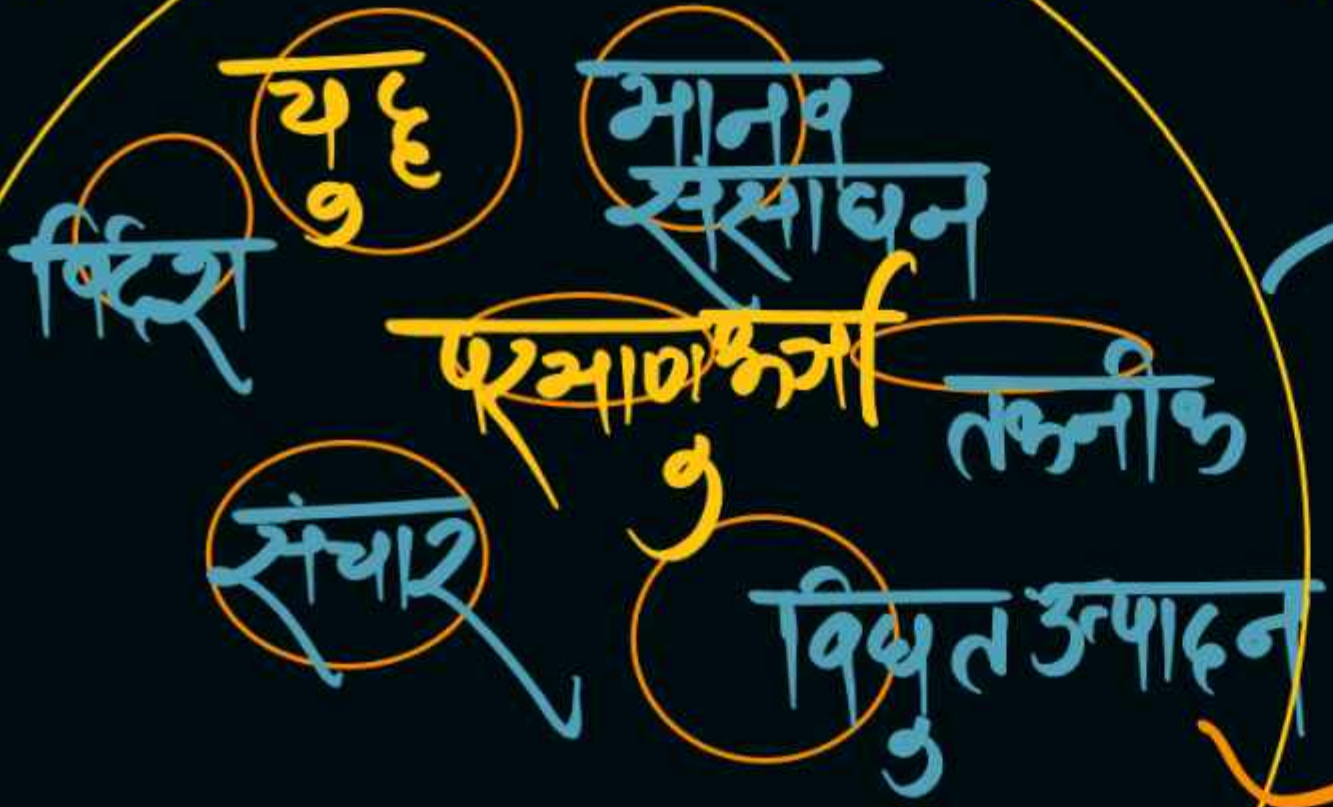 युद्ध
मानव
संसाधन
विदेश
परमाणु ऊर्जा
तकनीक
संचार
विद्युत उत्पादन